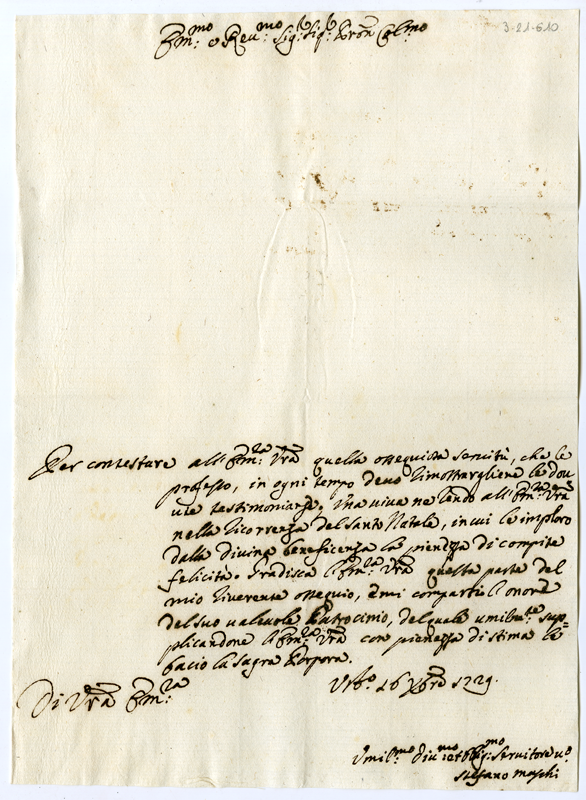 3-21-610
Em:mo e Reu:mo Sig:r Sig:r Pron Col:mo
Per contestare all' Em:za Vra quella ossequiosa seruitù, che le
professo, in ogni tempo deuo dimostrargliene le dou
ute testimonianze. Una viua ne rendo all' Em:za Vra
nella ricorrenza del santo Natale, in cui le imploro
dalla Divina beneficenza la pienezza di compite
felicità. Gradisca l' Em:za Vra questa parte del
mio riuerente ossequio, e mi comparta l' onore
del suo ualeuole Patrocinio, del quale umilm:te sup=
plicandone l' Em:za Vra con pienezza di stima le
bacio la Sagra Porpora.
Di Vra Em:za
Urb:o 16 Xbre 1729.
Umil:mo Diu:mo et Oblig:mo Seruitore u:o
Stefano Moschi